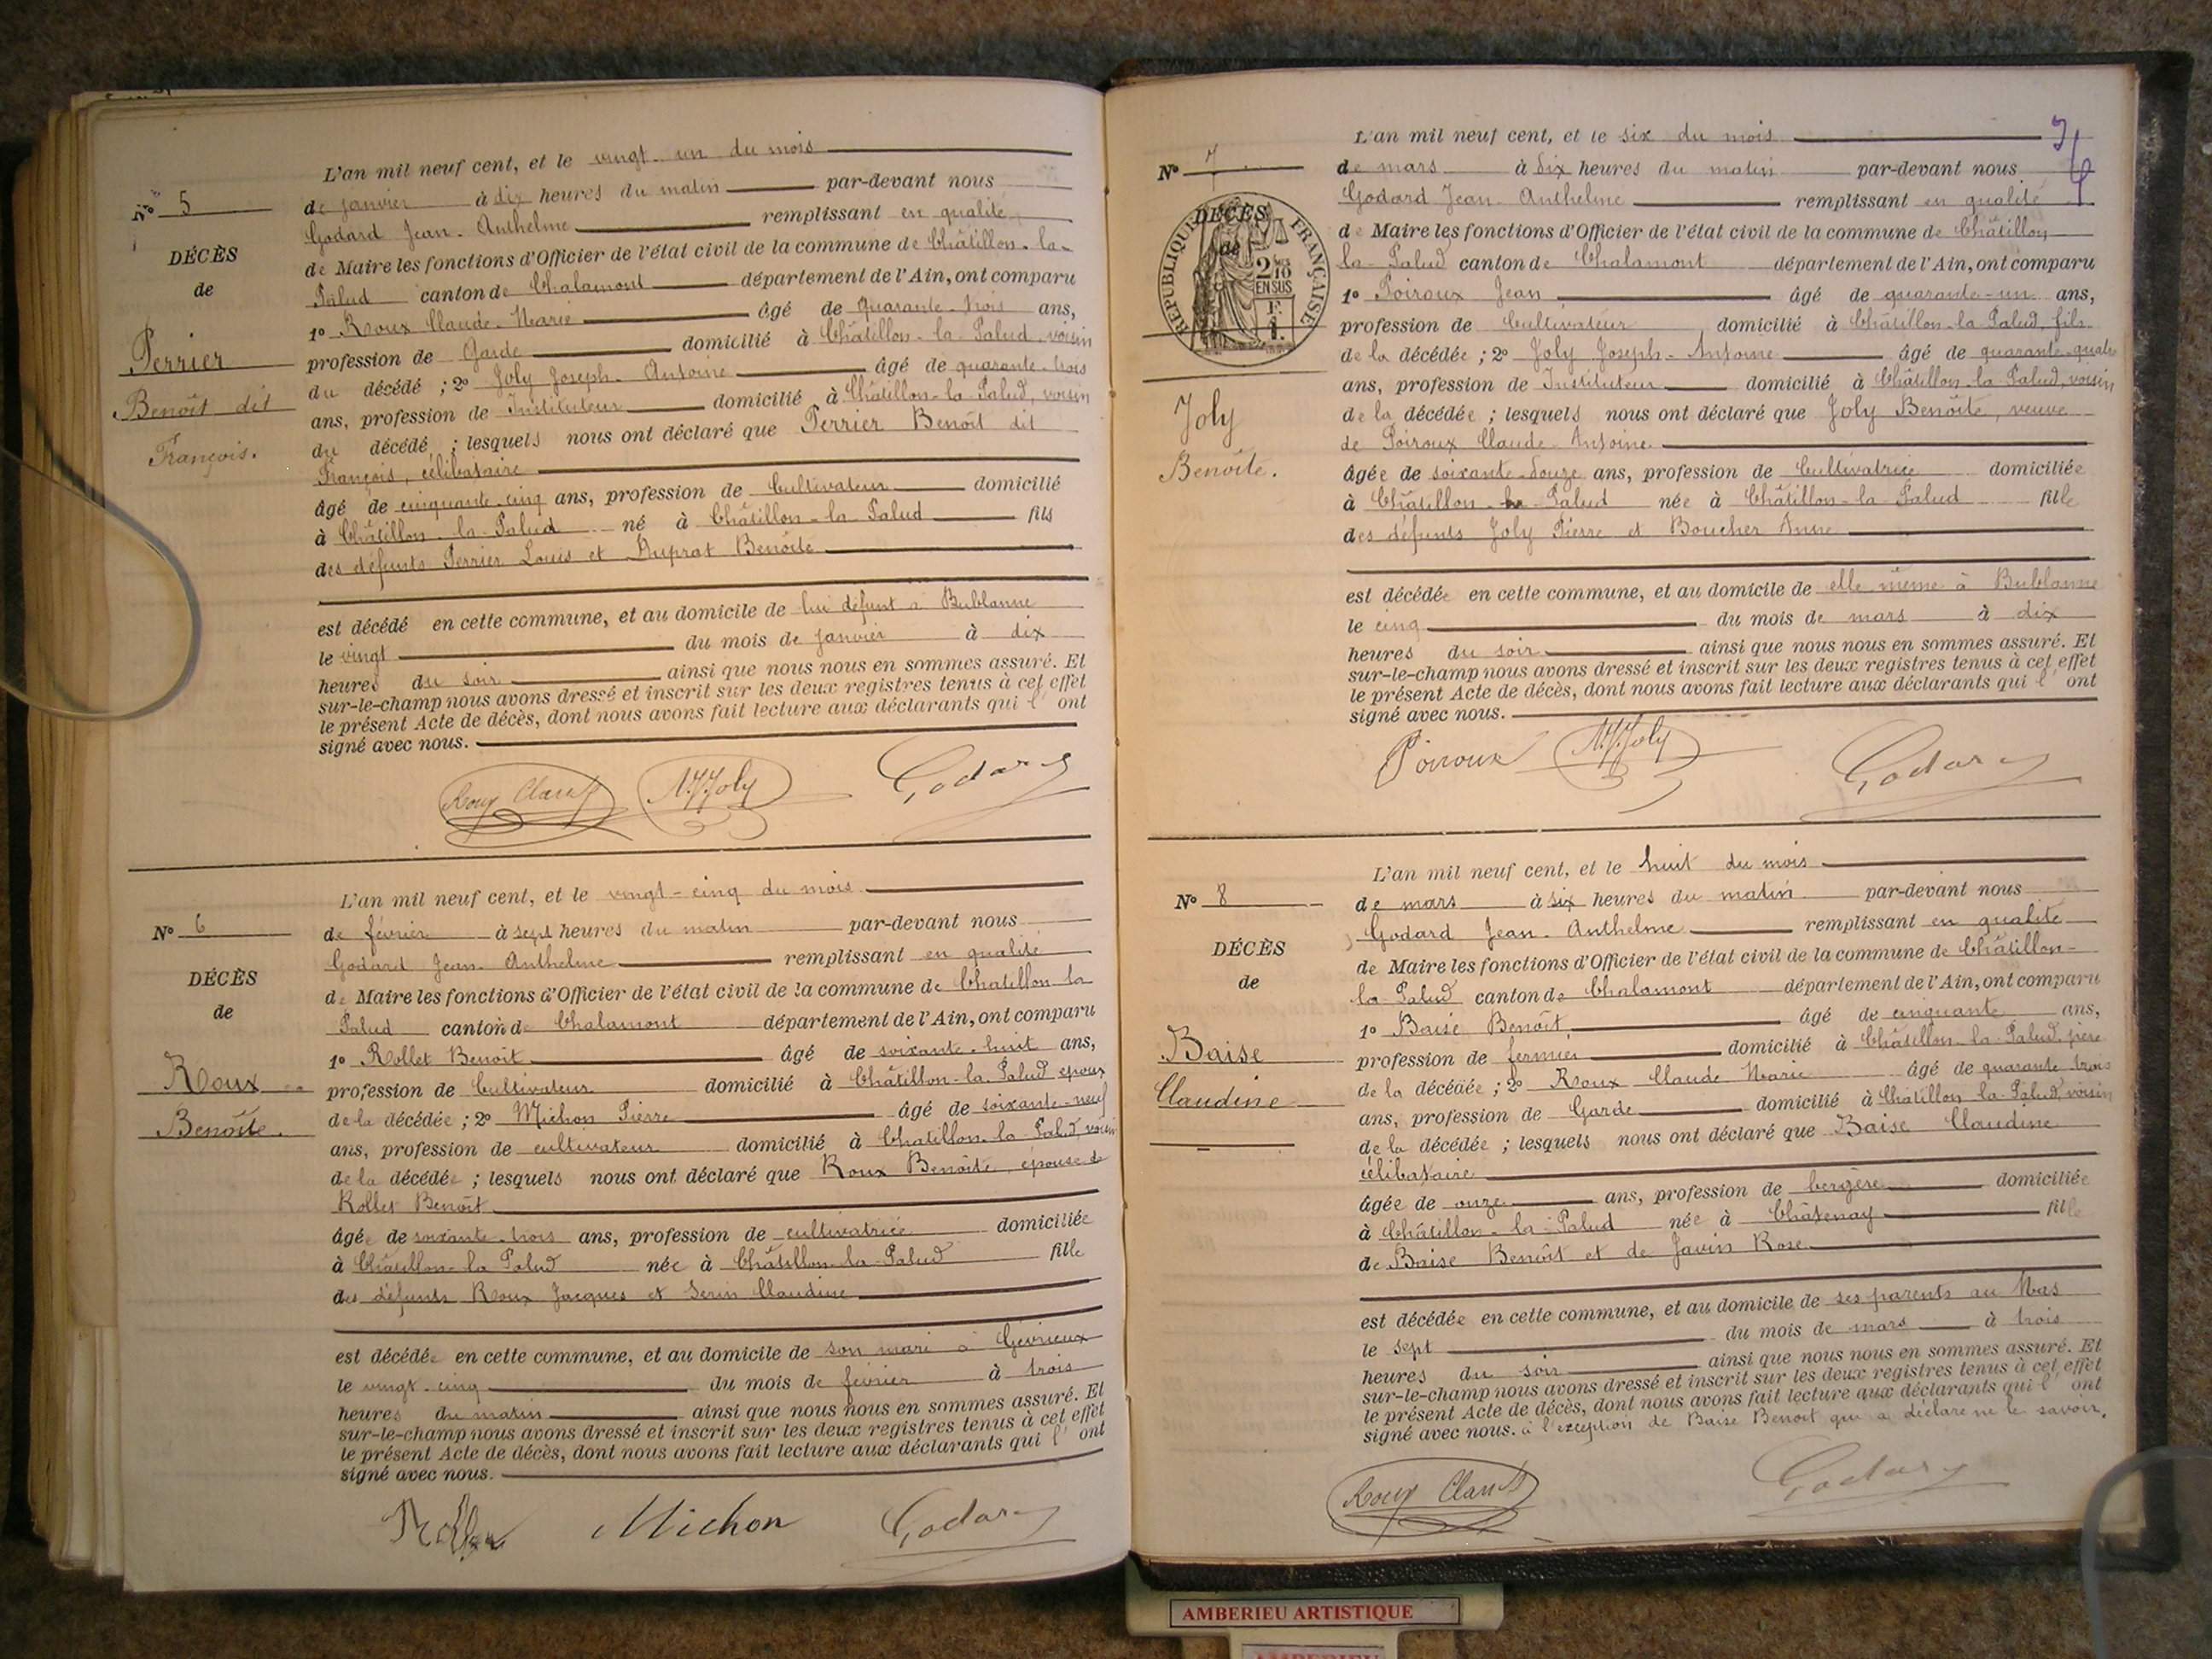 L'an mil neuf cent, et le vingt-un du mois
N° 5
de janvier à dix heures du matin par-devant nous
Godard Jean-Anthelme remplissant en qualité
DÉCÈS
de Maire les fonctions d'Officier de l'état civil de la commune de Châtillon-la-
de
Palud canton de Chalamont département de l'Ain, ont comparu
1° Roux Claude-Marie âgé de quarante-trois ans,
Perrier
profession de Garde domicilié à Châtillon-la-Palud, voisin
Benoît dit
du décédé ; 2° Joly Joseph-Antoine âgé de quarante-trois
ans, profession de Instituteur domicilié à Châtillon-la-Palud, voisin
François.
du décédé ; lesquels nous ont déclaré que Perrier Benoît dit
François, célibataire
âgé de cinquante-cinq ans, profession de Cultivateur domicilié
à Châtillon-la-Palud né à Châtillon-la-Palud fils
des défunts Perrier Louis et Duprat Benoîte
est décédé en cette commune, et au domicile de lui défunt à Bublanne
le vingt du mois de janvier à dix
heures du soir ainsi que nous nous en sommes assuré. Et
sur-le-champ nous avons dressé et inscrit sur les deux registres tenus à cet effet
le présent Acte de décès, dont nous avons fait lecture aux déclarants qui l'ont
signé avec nous.
Roux Claude Joly Godard
L'an mil neuf cent, et le vingt-cinq du mois
N° 6
de février à sept heures du matin par-devant nous
Godard Jean-Anthelme remplissant en qualité
DÉCÈS
de Maire les fonctions d'Officier de l'état civil de la commune de Chatillon-la
de
Palud canton de Chalamont département de l'Ain, ont comparu
1° Rollet Benoît âgé de soixante-huit ans,
Roux
profession de Cultivateur domicilié à Châtillon-la-Palud époux
Benoîte.
de la décédée ; 2° Michon Pierre âgé de soixante-neuf
ans, profession de cultivateur domicilié à Chatillon-la-Palud, voisin
de la décédée ; lesquels nous ont déclaré que Roux Benoîte, épouse de
Rollet Benoît
âgée de soixante-trois ans, profession de cultivatrice domiciliée
à Châtillon-la-Palud née à Châtillon-la-Palud fille
des défunts Roux Jacques et Serin Claudine
est décédée en cette commune, et au domicile de son mari à Gévrieux
le vingt-cinq du mois de février à trois
heures du matin ainsi que nous nous en sommes assuré. Et
sur-le-champ nous avons dressé et inscrit sur les deux registres tenus à cet effet
le présent Acte de décès, dont nous avons fait lecture aux déclarants qui l'ont
signé avec nous.
Rollet Michon Godard
L'an mil neuf cent, et le six du mois
N° 7
de mars à dix heures du matin par-devant nous
Godard Jean-Anthelme remplissant en qualité
DÉCÈS
de
RÉPUBLIQUE FRANÇAISE
2/10 EN SUS
F. 1.
de Maire les fonctions d'Officier de l'état civil de la commune de Châtillon
la-Palud canton de Chalamont département de l'Ain, ont comparu
1° Poiroux Jean âgé de quarante-un ans,
profession de Cultivateur domicilié à Châtillon-la-Palud, fils
de la décédée ; 2° Joly Joseph-Antoine âgé de quarante-quatre
ans, profession de Instituteur domicilié à Châtillon-la-Palud, voisin
Joly
Benoîte.
de la décédée ; lesquels nous ont déclaré que Joly Benoîte, veuve
de Poiroux Claude-Antoine
âgée de soixante-douze ans, profession de Cultivatrice domiciliée
à Châtillon-la-Palud née à Châtillon-la-Palud fille
des défunts Joly Pierre et Boucher Anne
est décédée en cette commune, et au domicile de elle même à Bublanne
le cinq du mois de mars à dix
heures du soir ainsi que nous nous en sommes assuré. Et
sur-le-champ nous avons dressé et inscrit sur les deux registres tenus à cet effet
le présent Acte de décès, dont nous avons fait lecture aux déclarants qui l'ont
signé avec nous.
Poiroux Joly Godard
L'an mil neuf cent, et le huit du mois
N° 8
de mars à six heures du matin par-devant nous
Godard Jean-Anthelme remplissant en qualité
DÉCÈS
de Maire les fonctions d'Officier de l'état civil de la commune de Châtillon-
de
la-Palud canton de Chalamont département de l'Ain, ont comparu
1° Baise Benoît âgé de cinquante ans,
Baise
profession de fermier domicilié à Châtillon-la-Palud, père
Claudine
de la décédée ; 2° Roux Claude Marie âgé de quarante trois
ans, profession de Garde domicilié à Châtillon-la-Palud, voisin
de la décédée ; lesquels nous ont déclaré que Baise Claudine
célibataire
âgée de onze ans, profession de bergère domiciliée
à Châtillon-la-Palud née à Châtenay fille
de Baise Benoît et de Javin Rose
est décédée en cette commune, et au domicile de ses parents au Mas
le sept du mois de mars à trois
heures du soir ainsi que nous nous en sommes assuré. Et
sur-le-champ nous avons dressé et inscrit sur les deux registres tenus à cet effet
le présent Acte de décès, dont nous avons fait lecture aux déclarants qui l'ont
signé avec nous. à l'exception de Baise Benoît qui a déclaré ne le savoir.
Roux Claude Godard
AMBERIEU ARTISTIQUE